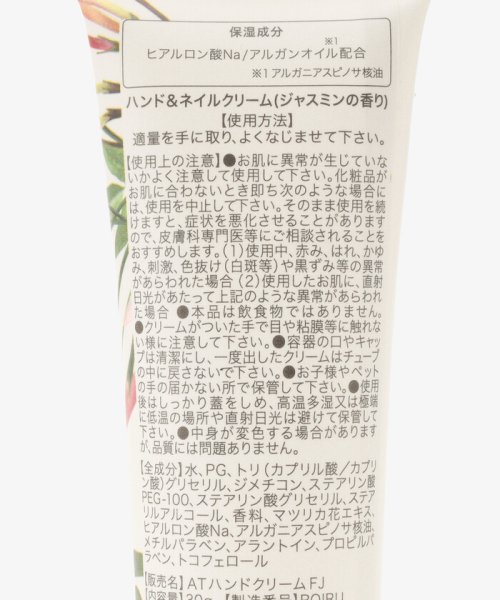 保湿成分
※1
ヒアルロン酸Na/アルガンオイル配合
※1 アルガニアスピノサ核油
ハンド&ネイルクリーム(ジャスミンの香り)
【使用方法】
適量を手に取り、よくなじませて下さい。
【使用上の注意】●お肌に異常が生じていな
いかよく注意して使用して下さい。化粧品が
お肌に合わないとき即ち次のような場合に
は、使用を中止して下さい。そのまま使用を続
けますと、症状を悪化させることがあります
ので、皮膚科専門医等にご相談されることを
おすすめします。(1)使用中、赤み、はれ、かゆ
み、刺激、色抜け(白斑等)や黒ずみ等の異常
があらわれた場合(2)使用したお肌に、直射
日光があたって上記のような異常があらわれ
た場合 ●本品は飲食物ではありません。
●クリームがついた手で目や粘膜等に触れな
い様に注意して下さい。●容器の口やキャッ
プは清潔にし、一度出したクリームはチューブ
の中に戻さないで下さい。●お子様やペット
の手の届かない所で保管して下さい。●使用
後はしっかり蓋をしめ、高温多湿又は極端
に低温の場所や直射日光は避けて保管して
下さい。●中身が変色する場合があります
が、品質には問題ありません。
【全成分】水、PG、トリ(カプリル酸/カプリ
ン酸)グリセリル、ジメチコン、ステアリン酸
PEG-100、ステアリン酸グリセリル、ステア
リルアルコール、香料、マツリカ花エキス、
ヒアルロン酸Na、アルガニアスピノサ核油、
メチルパラベン、アラントイン、プロピルパ
ラベン、トコフェロール
【販売名】ATハンドクリームFJ
【内容量】30g 【製造番号】BOIRU